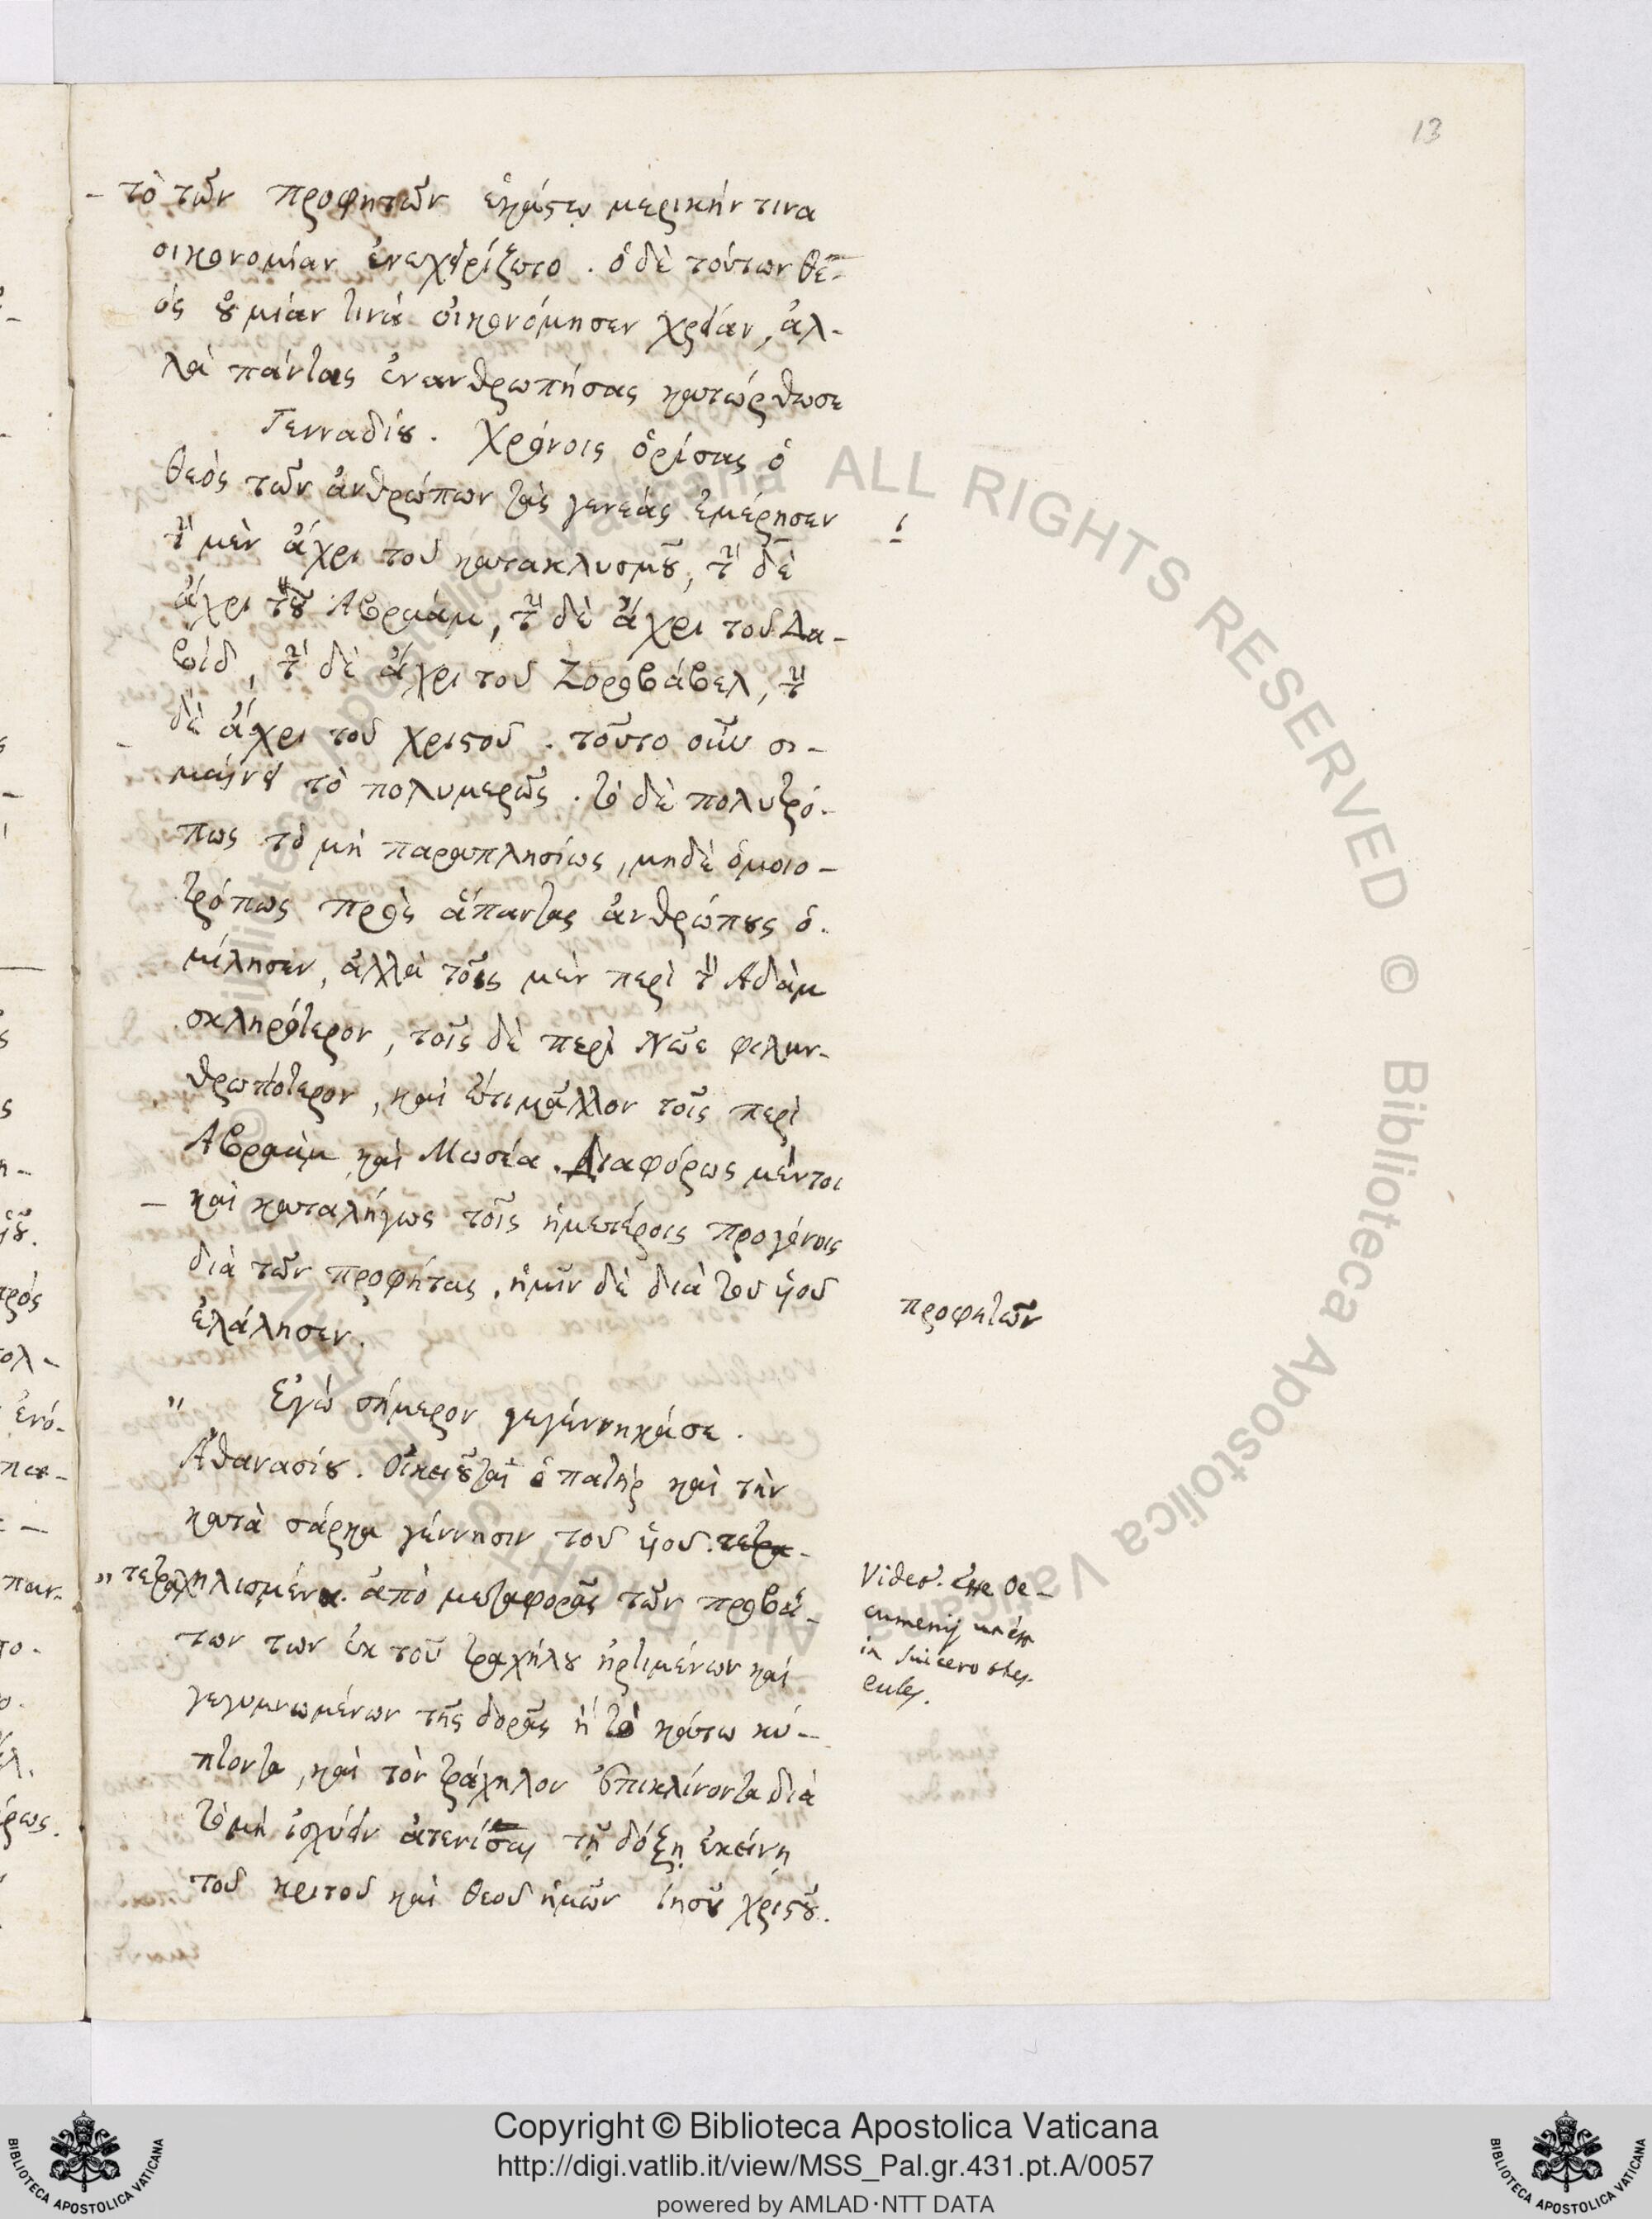 13
- τὸ τῶν προφητῶν ἑκάστῳ μερικήν τινα
οἰκονομίαν ἐνεχειρίζετο . ὁ δὲ τούτων θε-
ός οὐ μίαν τινὰ οἰκονόμησεν χρείαν, ἀλ-
λὰ πάντας ἐνανθρωπήσας κατώρθωσε
Γενναδίου. Χρόνοις ὁρίσας ὁ
θεὸς τῶν ἀνθρώπων τὰς γενεάς ἐμέρησεν
τὴν μὲν ἄχρι τοῦ κατακλυσμοῦ, τὴν δὲ
ἄχρι τοῦ Ἀβραάμ, τὴν δὲ ἄχρι τοῦ Δα-
βίδ, τὴν δὲ ἄχρι τοῦ Ζοροβάβελ, τὴν
δὲ ἄχρι τοῦ χριστοῦ . τοῦτο οὖν σι-
μαίνει τὸ πολυμερῶς . τὸ δὲ πολυτρό-
πως τὸ μὴ παραπλησίως, μηδὲ ὁμοιο-
τρόπως πρὸς ἅπαντας ἀνθρώπους ὁ-
μίλησεν, ἀλλὰ τοῖς μὲν περὶ τὸν Ἀδὰμ
σκληρότερον, τοῖς δὲ περὶ Νῶε φιλαν-
θρωπότερον, καὶ ἔτι μᾶλλον τοῖς περὶ
Ἀβραὰμ καὶ Μωσέα . Διαφόρως μέντοι
- καὶ καταλήγως τοῖς ἡμετέροις προγόνοις
διὰ τῶν προφήτας . ἡμῖν δὲ διὰ τοῦ υἱοῦ
προφητῶν
ἐλάλησεν.
" Ἐγὼ σήμερον γεγέννηκάσε .
Ἀθανασίου. Οἰκειοῦται ὁ πατὴρ καὶ τὴν
κατὰ σάρκα γέννησιν τοῦ υἱοῦ. τετρα-
" τετραχηλισμένα. ἀπὸ μεταφορᾶς τῶν προβά-
των των ἐκ τοῦ τραχήλου ἠρτιμένων καὶ
γεγυμνωμένων τῆς δορᾶς ἢ τὸ κάτω κύ-
πτοντα, καὶ τὸν τράχηλον ἐπικλίνοντα διὰ
τὸ μὴ ἰσχύειν ἀτενίσαι τῇ δόξῃ ἐκείνῃ
τοῦ κριτοῦ καὶ θεοῦ ἡμῶν Ἰησοῦ χριστοῦ.
Videt. esse Oe-
cumenij
in Suicero
© Biblioteca Apostolica Vaticana ALL RIGHTS RESERVED © Biblioteca Apostolica Vaticana ALL RIGHTS RESERVED
Copyright © Biblioteca Apostolica Vaticana
http://digi.vatlib.it/view/MSS_Pal.gr.431.pt.A/0057
powered by AMLAD·NTT DATA
BIBLIOTECA APOSTOLICA VATICANA
BIBLIOTECA APOSTOLICA VATICANA